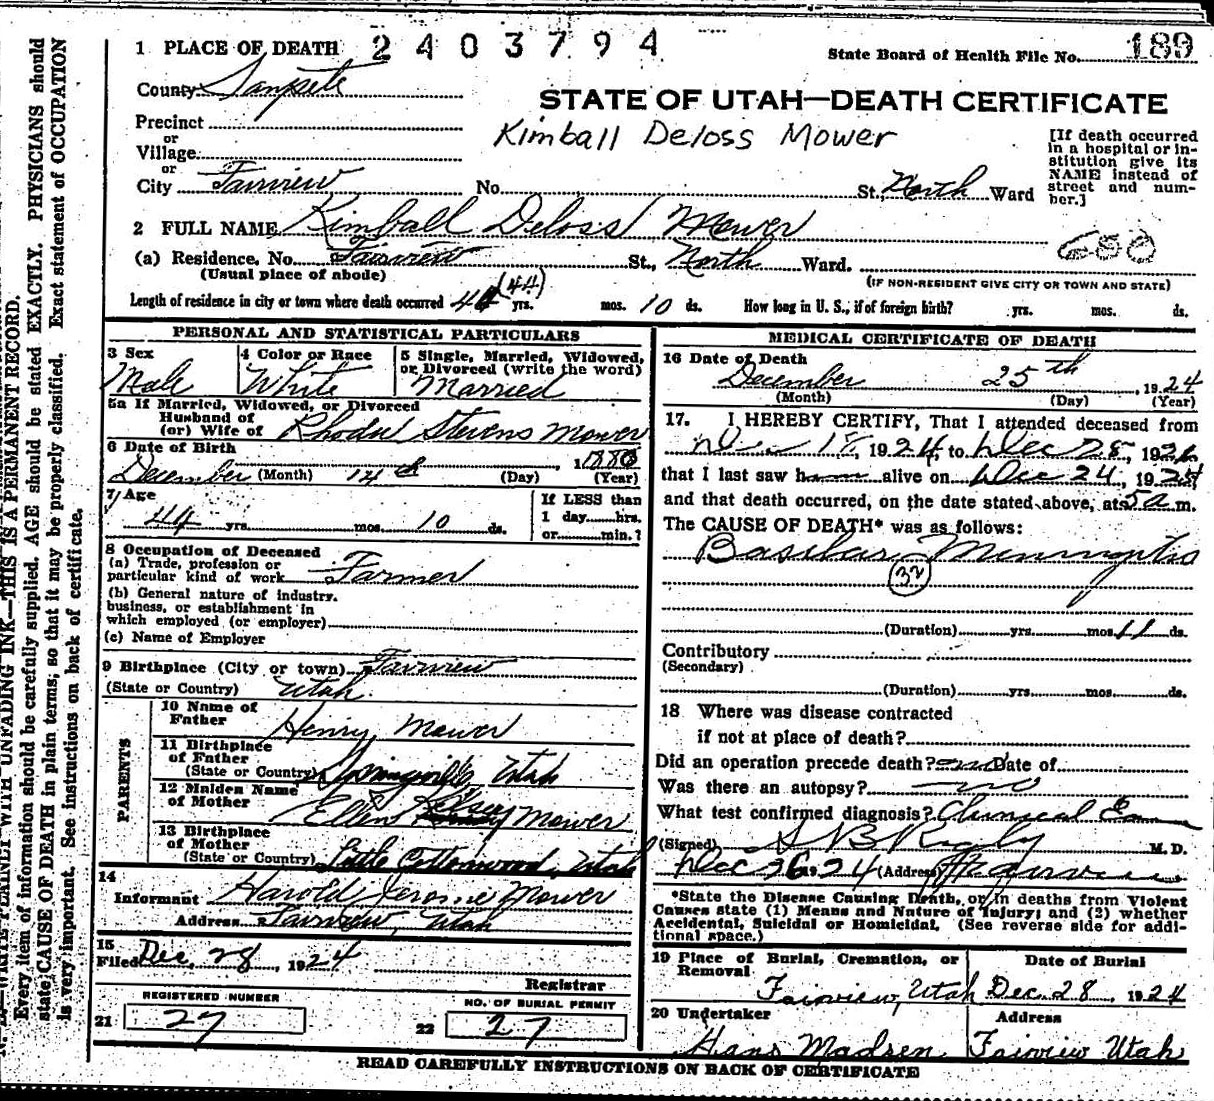 1 PLACE OF DEATH 2403794
State Board of Health File No. 189
County Sanpete
STATE OF UTAH—DEATH CERTIFICATE
Precinct
or
Village
or
City Fairview No. St., North Ward
Kimball Deloss Mower
[If death occurred
in a hospital or in-
stitution give its
NAME instead of
street and num-
ber.]
2 FULL NAME Kimball Deloss Mower
(a) Residence. No. Fairview St., North Ward.
(Usual place of abode)
(IF NON-RESIDENT GIVE CITY OR TOWN AND STATE)
Length of residence in city or town where death occurred 44 (44) yrs. mos. 10 ds. How long in U. S., if of foreign birth? yrs. mos. ds.
PERSONAL AND STATISTICAL PARTICULARS
3 Sex
Male
4 Color or Race
White
5 Single, Married, Widowed,
or Divorced (write the word)
Married
5a If Married, Widowed, or Divorced
Husband of
(or) Wife of Rhoda Stevens Mower
6 Date of Birth
December (Month) 14th (Day), 1880
(Year)
7 Age
44 yrs. mos. 10 ds.
If LESS than
1 day hrs.
or min.?
8 Occupation of Deceased
(a) Trade, profession or
particular kind of work Farmer
(b) General nature of industry,
business, or establishment in
which employed (or employer)
(c) Name of Employer
9 Birthplace (City or town) Fairview
(State or Country) Utah.
PARENTS
10 Name of
Father Henry Mower
11 Birthplace
of Father
(State or Country) Springville, Utah
12 Maiden Name
of Mother Ellen Mower
13 Birthplace
of Mother
(State or Country) Little Cottonwood, Utah
14
Informant Harold Jerome Mower
Address Fairview, Utah
15
Filed Dec, 28, 1924
Registrar
REGISTERED NUMBER
21 27
NO. OF BURIAL PERMIT
22 27
MEDICAL CERTIFICATE OF DEATH
16 Date of Death
December 25th, 1924
(Month) (Day) (Year)
17. I HEREBY CERTIFY, That I attended deceased from
Dec, 1924 to Dec 25, 192
that I last saw h alive on Dec 24, 1924
and that death occurred, on the date stated above, at 5 a m.
The CAUSE OF DEATH* was as follows:
Basilar Meningitis
32
(Duration) yrs. mos. 11 ds.
Contributory
(Secondary)
(Duration) yrs. mos. ds.
18 Where was disease contracted
if not at place of death?
Did an operation precede death? no Date of
Was there an autopsy? no
What test confirmed diagnosis?
(Signed) M. D.
Dec 26 1924 (Address) Fairview
*State the Disease Causing Death, or in deaths from Violent
Causes state (1) Means and Nature of Injury; and (2) whether
Accidental, Suicidal or Homicidal. (See reverse side for addi-
tional space.)
19 Place of Burial, Cremation, or
Removal
Fairview, Utah
Date of Burial
Dec. 28, 1924
20 Undertaker
Hans Madsen
Address
Fairview Utah
READ CAREFULLY INSTRUCTIONS ON BACK OF CERTIFICATE
WRITE PLAINLY WITH UNFADING INK—THIS IS A PERMANENT RECORD.
Every item of information should be carefully supplied. AGE should be stated EXACTLY. PHYSICIANS should
state CAUSE OF DEATH in plain terms; so that it may be properly classified. Exact statement of OCCUPATION
is very important. See instructions on back of certificate.